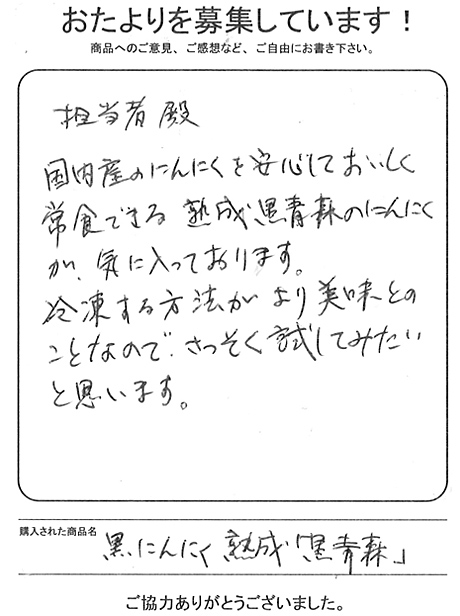 おたよりを募集しています！
商品へのご意見、ご感想など、ご自由にお書き下さい。
担当者 殿
国内産のにんにくを安心しておいしく
常食できる 熟成黒青森のにんにく
が、気に入っております。
冷凍する方法がより美味との
ことなので、さっそく試してみたい
と思います。
購入された商品名
黒にんにく 熟成「黒青森」
ご協力ありがとうございました。